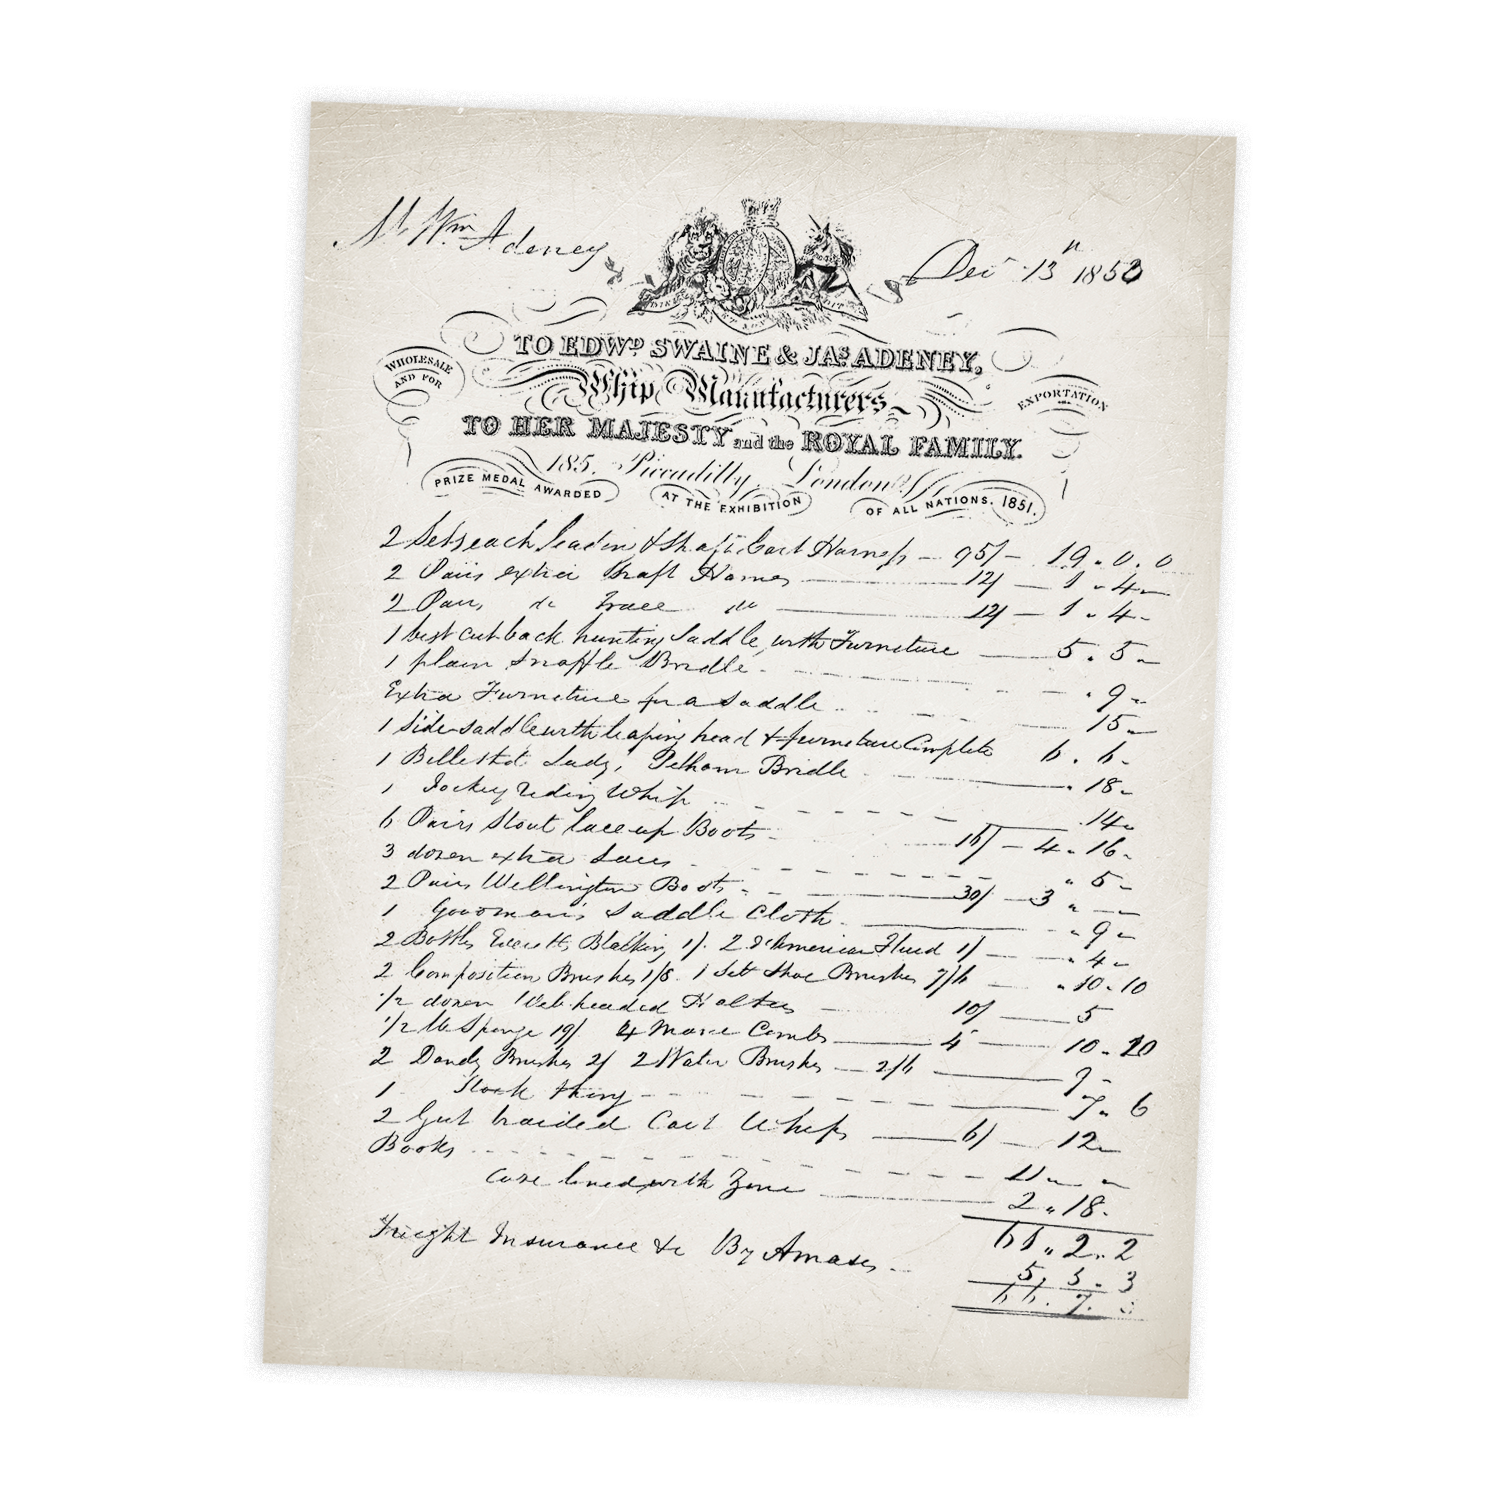 Mr Wm Adeney
Decr 13th 1853
DIEU ET MON DROIT
TO EDWD SWAINE & JAS ADENEY,
WHOLESALE AND FOR
EXPORTATION
Whip Manufacturers
TO HER MAJESTY and the ROYAL FAMILY.
185, Piccadilly, London
PRIZE MEDAL AWARDED AT THE EXHIBITION OF ALL NATIONS. 1851.
2 Sets each leading & Shaft Cart Harness — 95/ — 19 . 0 . 0
2 Pairs extra Shaft Hames — 12/ — 1 . 4 —
2 Pairs do Trace do — 12/ — 1 . 4 -
1 best cut back hunting Saddle, with Furniture — 5 . 5 —
1 plain Snaffle Bridle - " 9 -
Extra Furniture for a Saddle — 15 —
1 Side saddle with leaping head & furniture Complete 6 . 6 -
1 Ladys Pelham Bridle — . 18 -
1 Jockey riding Whip - . 14 -
6 Pairs Stout lace up Boots - 16/ — 4 . 16 -
3 dozen extra Laces - " 5 -
2 Pairs Wellington Boots - 30/ — 3 " —
1 Saddle Cloth — " 9 -
2 Bottles Everetts Blacking 1/. 2 do American Fluid 1/ — " 4 -
2 Composition Brushes 1/8. 1 Set Shoe Brushes 7/6 — " 10 . 10
1/2 dozen Web headed Halters — 10/ — 5
1/2 lb Sponge 19/ 4 Mane Combs — 4 — 10 . 10
2 Dandy Brushes 2/ 2 Water Brushes — 2/6 — 9 -
1 — 7 " 6
2 Gut braided Cart Whips — 6/ — 12 —
Books - 11 " "
Case lined with Zinc — 2 " 18 -
61 " 2 . 2
Freight Insurance &c By - 5 . 5 . 3
66 . 7 .